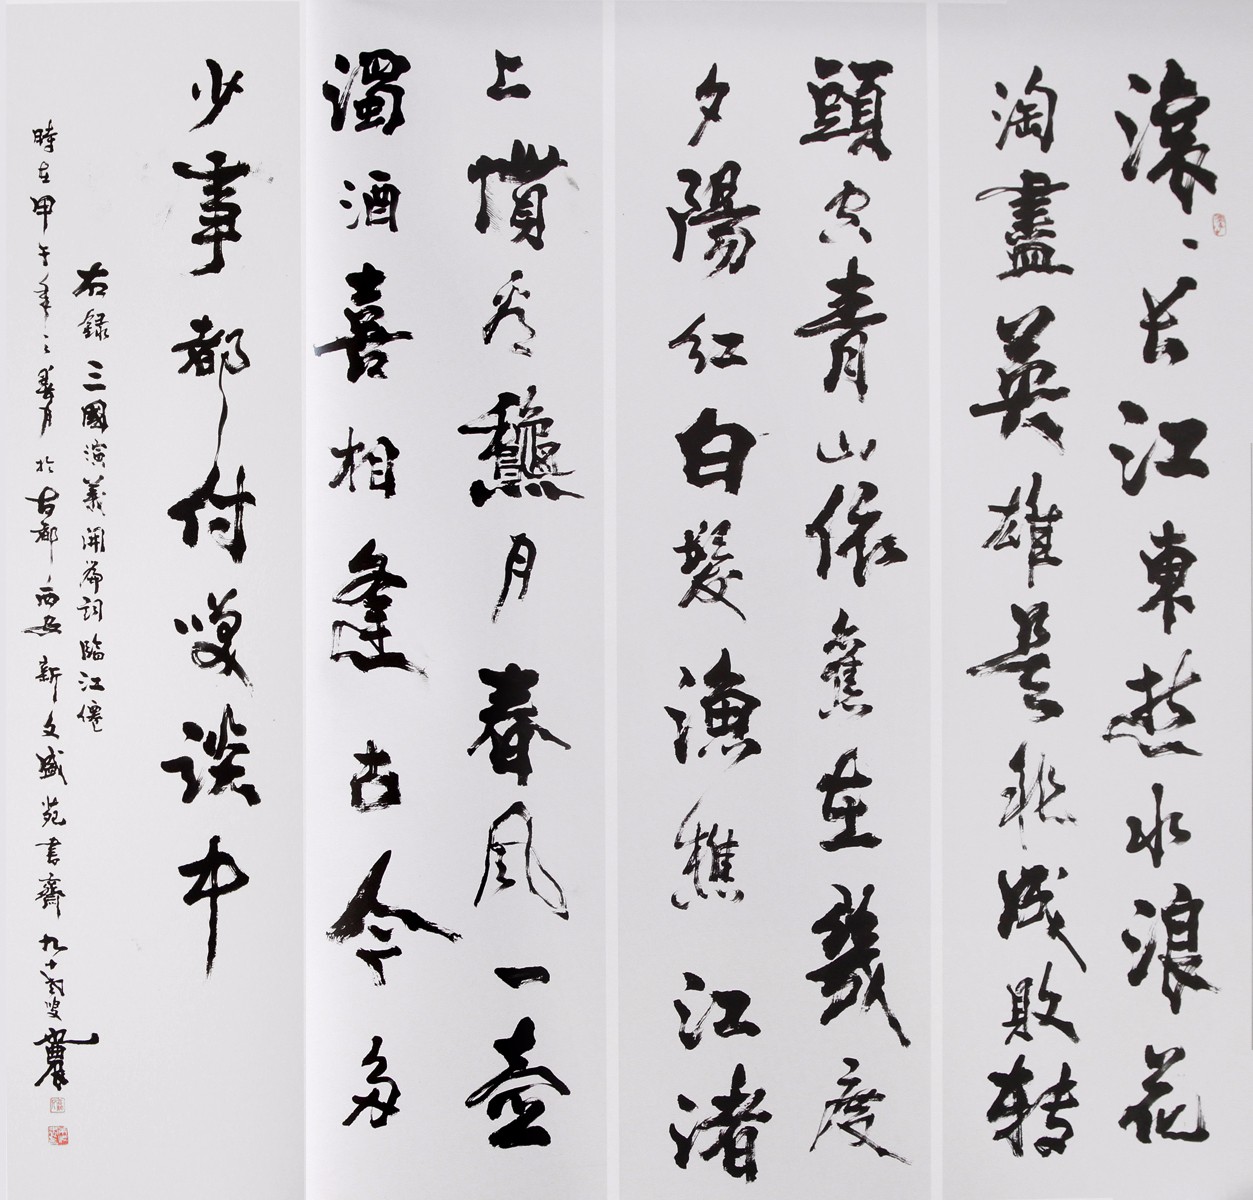 滚〻长江東逝水浪花
淘盡英雄是非成敗转
頭空青山依舊在幾度
夕陽红白髮漁樵江渚
上慣看龝月春风一壺
濁酒喜相逢古今多
少事都付笑談中
右録三國演義開篇詞臨江僊
時在甲午年之春月於古都西安新文盛苑書齋九十叟